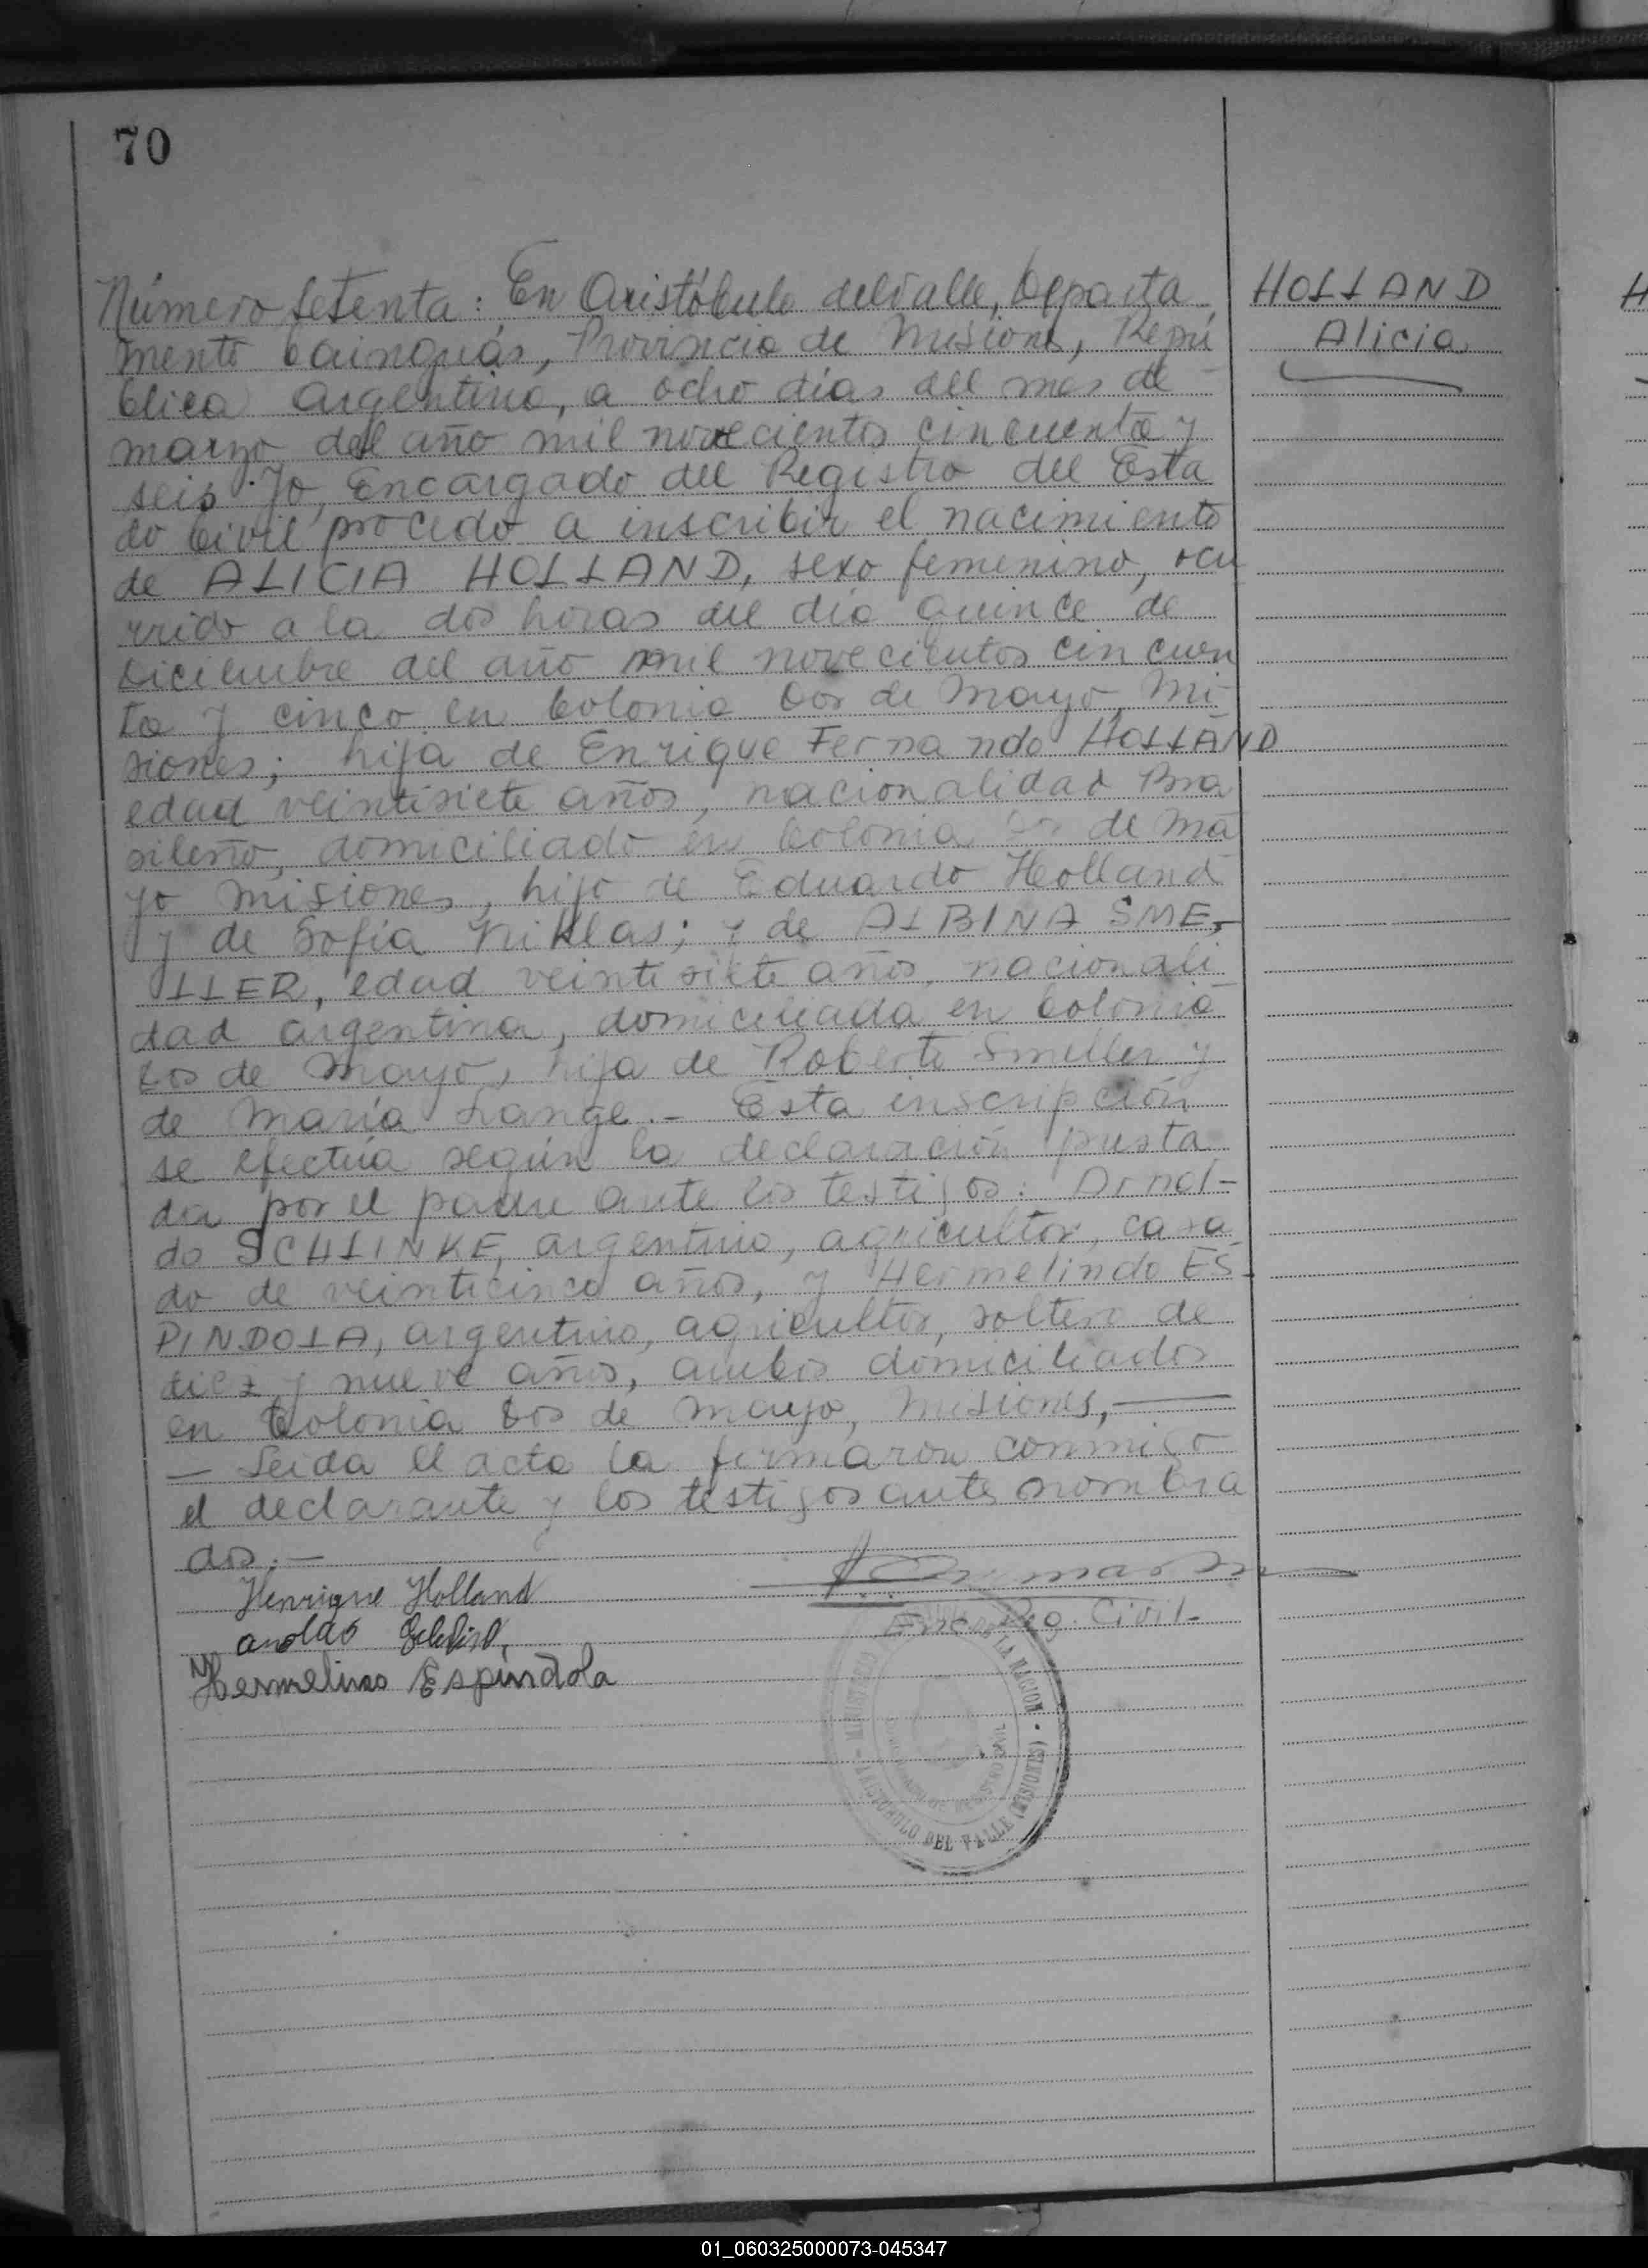 70
Número setenta: En Aristóbulo del Valle, Departa
mento Cainguás, Provincia de Misiones, Repú
blica Argentina, a ocho días del mes de
marzo del año mil novecientos cincuenta y
seis. Yo, Encargado del Registro del Esta
do Civil procedo a inscribir el nacimiento
de ALICIA HOLLAND, sexo femenino, ocu
rrido a la dos horas del día quince de
Diciembre del año mil novecientos cincuen
ta y cinco en Colonia Dos de Mayo, Mi
siones; hija de Enrique Fernando HOLLAND
edad veintisiete años, nacionalidad Bra
sileño, domiciliado en Colonia Dos de Ma
yo Misiones, hijo de Eduardo Holland
y de Sofía Niklas; y de ALBINA SME-
LLER, edad veintisiete años, nacionali
dad argentina, domiciliada en Colonia
Dos de Mayo, hija de Roberto Smeller y
de María Lange.- Esta inscripción
se efectúa según la declaración presta
da por el padre ante los testigos: Arnol-
do SCHLINKE, argentino, agricultor, casa
do de veinticinco años, y Hermelindo ES-
PINDOLA, argentino, agricultor, soltero de
diez y nueve años, ambos domiciliados
en Colonia Dos de Mayo, Misiones,—
— Leída el acta la firmaron conmigo
el declarante y los testigos antes nombra
dos.—
Henrique Holland
Hermelino Espindola
Enc. Reg. Civil-
MINISTERIO DE LA NACION
ARISTOBULO DEL VALLE (MISIONES)
HOLLAND
Alicia
H
01_060325000073-045347